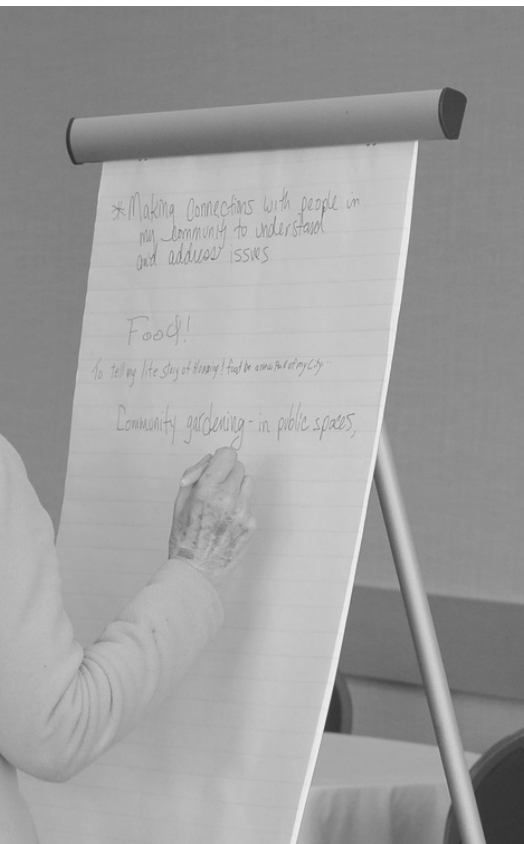 * Making Connections with people in
my community to understand
and address issues
Food!
To tell my life story of
Community gardening - in public spaces,